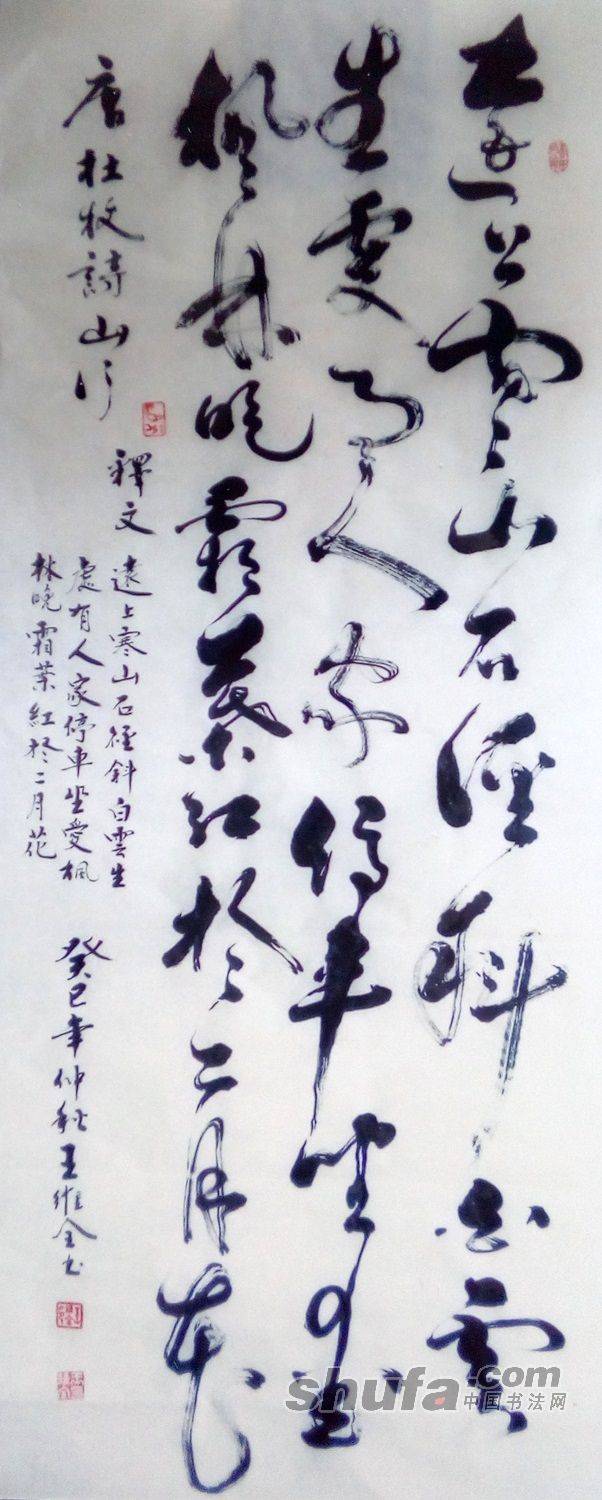 遠上寒山石徑斜白雲
生處有人家停車坐愛
楓林晚霜葉紅於二月花
唐杜牧詩山行
釋文
遠上寒山石徑斜白雲生
處有人家停車坐愛楓
林晚霜葉紅於二月花
癸巳年仲秋王維全書
shufa.com
中国书法网